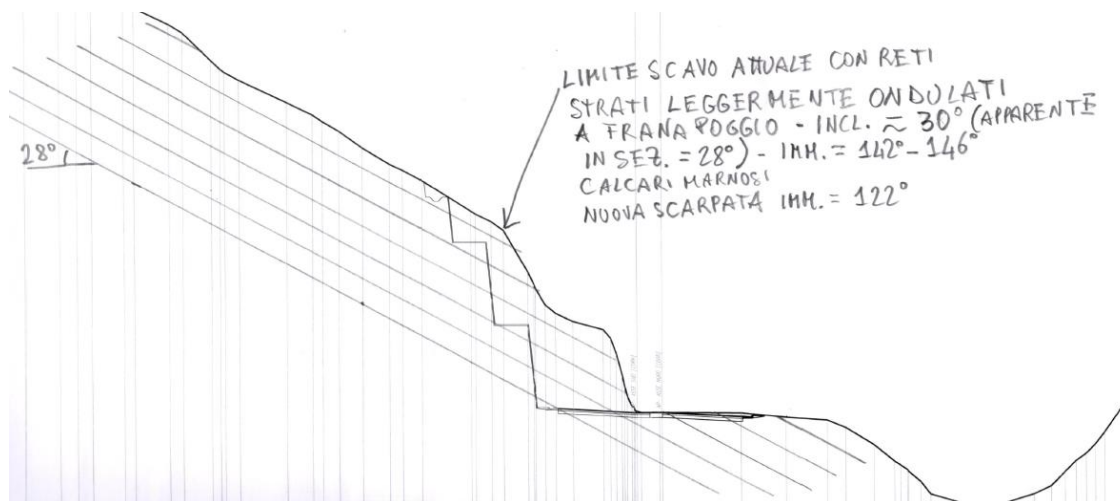 LIMITE SCAVO ATTUALE CON RETI
STRATI LEGGERMENTE ONDULATI
A FRANAPOGGIO - INCL. ≈ 30° (APPARENTE
IN SEZ. = 28°) - IMM. = 142° - 146°
CALCARI MARNOSI
NUOVA SCARPATA IMM. = 122°
28°